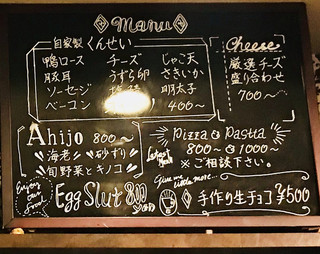 Manu
自家製 くんせい
鴨ロース チーズ じゃこ天
豚耳 うずら卵 さきいか
ソーセージ 明太子
ベーコン 400〜
Cheese
厳選チーズ
盛り合わせ
700〜
Ahijo 800〜
海老 砂ずり
旬野菜とキノコ
Pizza Pasta
800〜 1000〜
※ご相談下さい。
Give me little more...
Enjoy our Food
Egg Slut 800
手作り生チョコ ¥500